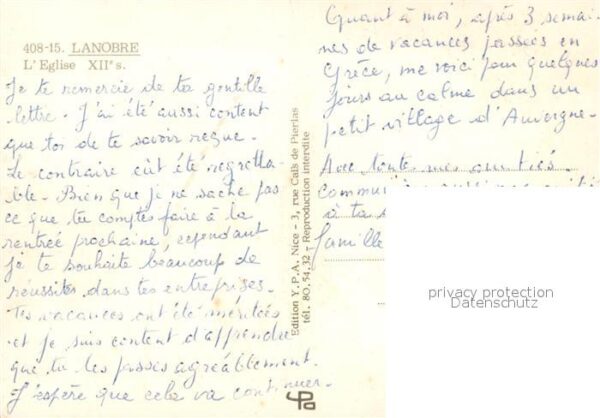 408-15. LANOBRE
L'Eglise XIIe s.
Je te remercie de ta gentille
lettre. J'ai été aussi content
que toi de te savoir reçue.
Le contraire eût été regretta-
ble. Bien que je ne sache pas
ce que tu comptes faire à la
rentrée prochaine, cependant
je te souhaite beaucoup de
réussites dans tes entreprises.
Tes vacances ont été méritées
et je suis content d'apprendre
que tu les passes agréablement.
J'espère que cela va continuer.
Edition Y.P.A. Nice - 3, rue Caïs de Pierlas
tél. 80.54.32 - Reproduction interdite
Quant à moi, après 3 semai-
nes de vacances passées en
Grèce, me voici pour quelques
jours au calme dans un
petit village d'Auvergne.
Avec toutes mes amitiés.
à ta
famille
privacy protection
Datenschutz